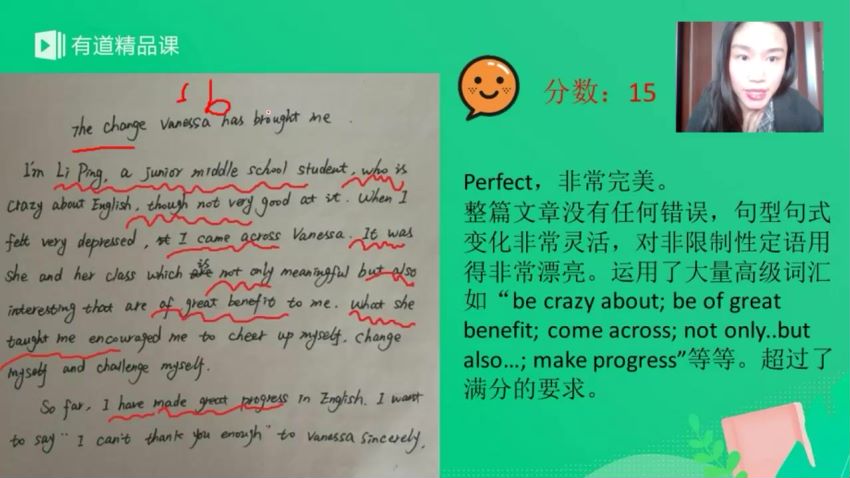 有道精品课
s b
The change Vanessa has brought me.
I'm Li Ping, a junior middle school student, who is
crazy about English, though not very good at it. When I
felt very depressed, I came across Vanessa. It was
she and her class which is not only meaningful but also
interesting that are of great benefit to me. What she
taught me encouraged me to cheer up myself, change
myself and challenge myself.
So far, I have made great progress in English. I want
to say "I can't thank you enough" to Vanessa sincerely.
分数：15
Perfect，非常完美。
整篇文章没有任何错误，句型句式
变化非常灵活，对非限制性定语用
得非常漂亮。运用了大量高级词汇
如“be crazy about; be of great
benefit; come across; not only..but
also...; make progress”等等。超过了
满分的要求。